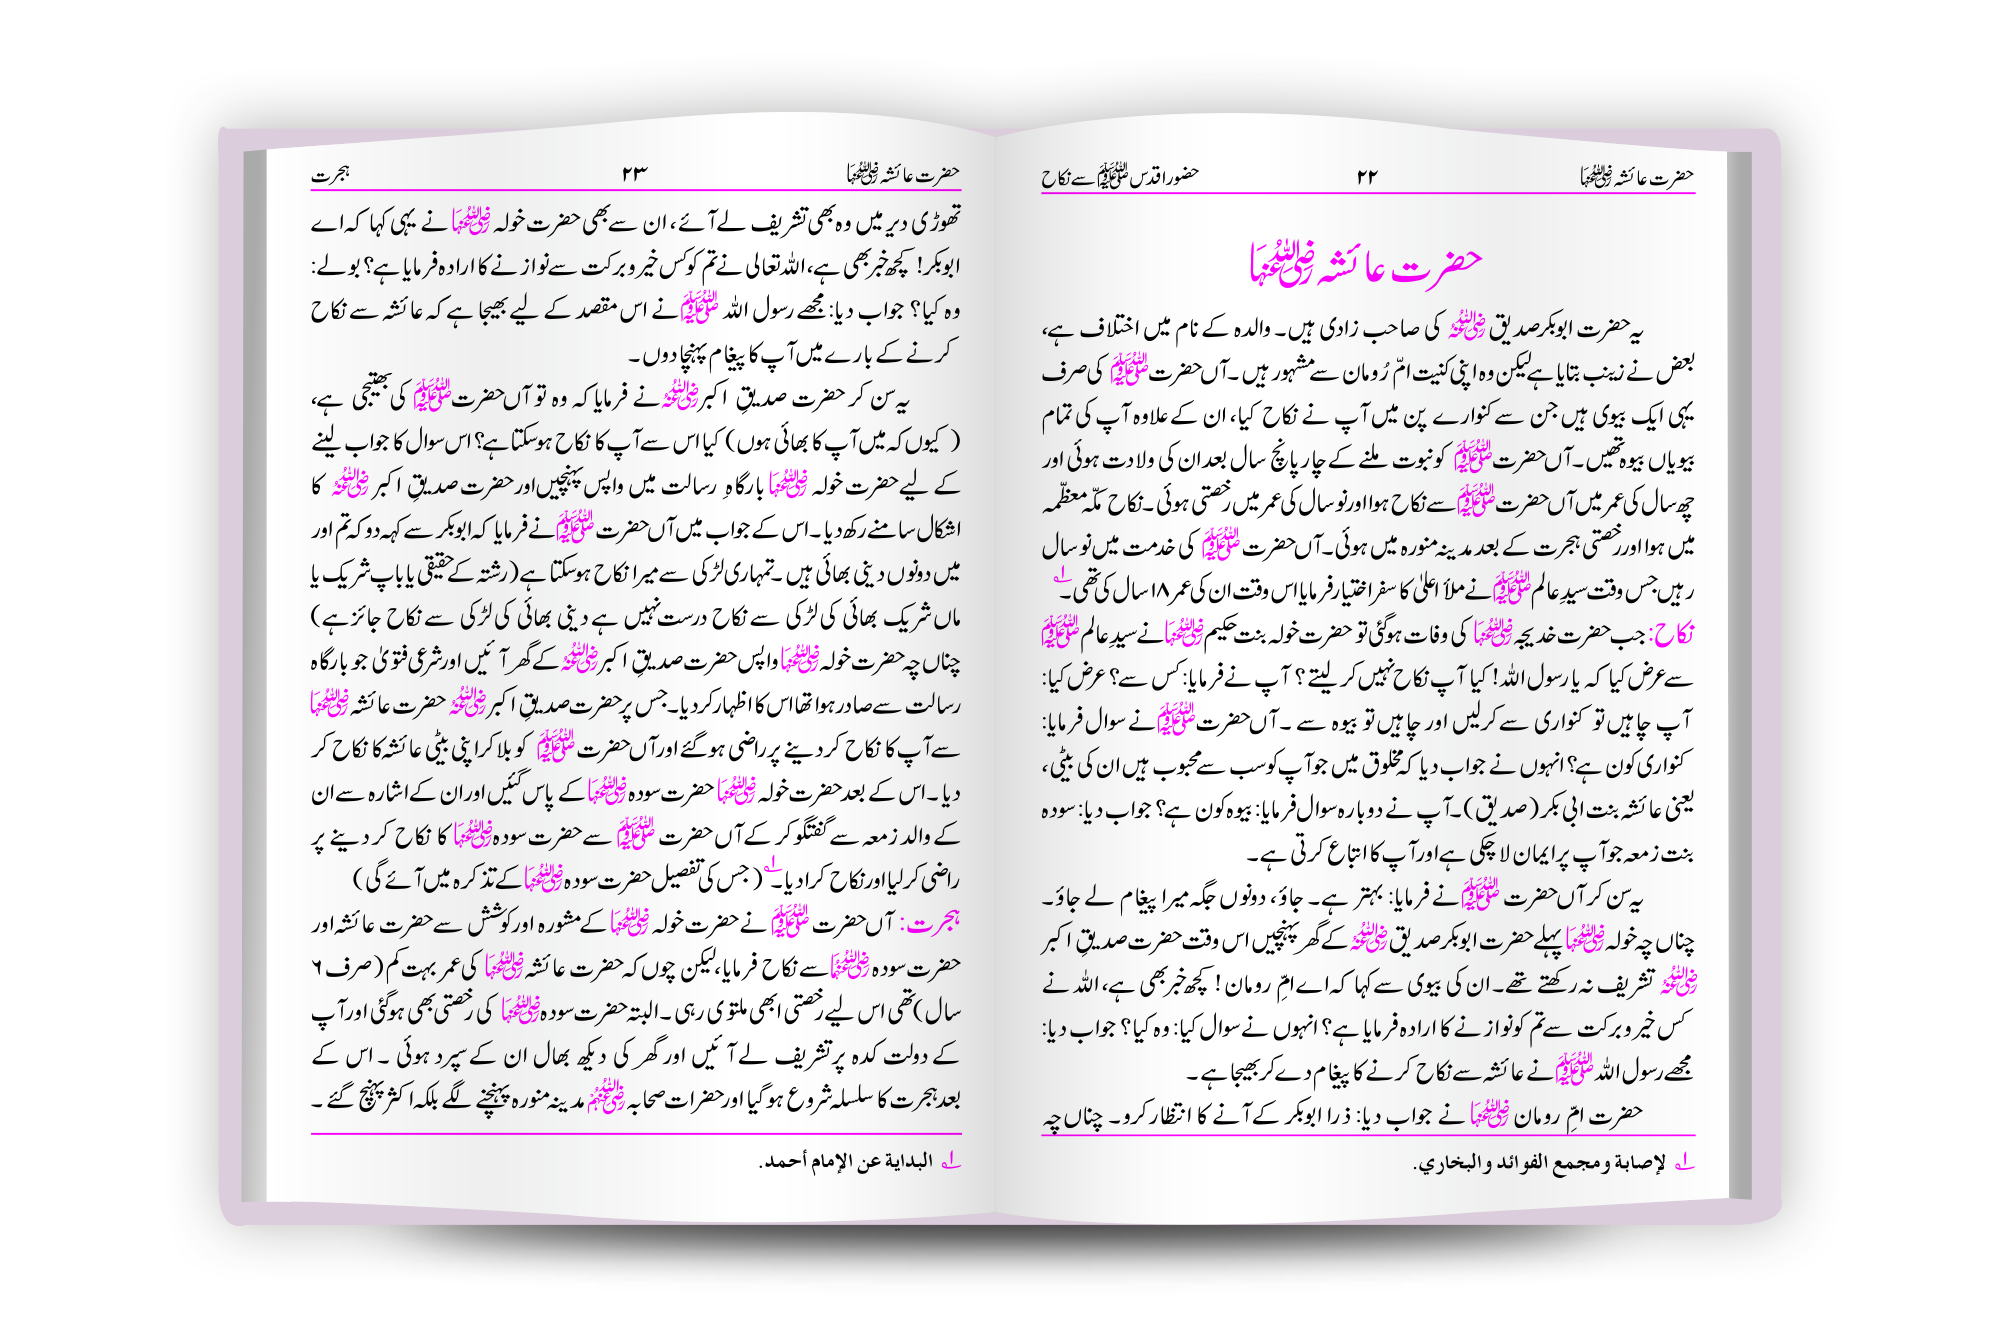 حضرت عائشہ رضی اللہ عنہا ۲۲ حضور اقدس ﷺ سے نکاح
حضرت عائشہ رضی اللہ عنہا
یہ حضرت ابوبکر صدیق رضی اللہ عنہ کی صاحب زادی ہیں۔ والدہ کے نام میں اختلاف ہے،
بعض نے زینب بتایا ہے لیکن وہ اپنی کنیت امّ رُومان سے مشہور ہیں۔ آں حضرت ﷺ کی صرف
یہی ایک بیوی ہیں جن سے کنوارے پن میں آپ نے نکاح کیا، ان کے علاوہ آپ کی تمام
بیویاں بیوہ تھیں۔ آں حضرت ﷺ کو نبوت ملنے کے چار پانچ سال بعد ان کی ولادت ہوئی اور
چھ سال کی عمر میں آں حضرت ﷺ سے نکاح ہوا اور نو سال کی عمر میں رخصتی ہوئی۔ نکاح مکّہ معظّمہ
میں ہوا اور رخصتی ہجرت کے بعد مدینہ منورہ میں ہوئی۔ آں حضرت ﷺ کی خدمت میں نو سال
رہیں جس وقت سیدِ عالم ﷺ نے ملأ اعلیٰ کا سفر اختیار فرمایا اس وقت ان کی عمر ۱۸ سال کی تھی۔ ؎۱
نکاح: جب حضرت خدیجہ رضی اللہ عنہا کی وفات ہوگئی تو حضرت خولہ بنت حکیم رضی اللہ عنہا نے سیدِ عالم ﷺ
سے عرض کیا کہ یا رسول اللہ! کیا آپ نکاح نہیں کر لیتے؟ آپ نے فرمایا: کس سے؟ عرض کیا:
آپ چاہیں تو کنواری سے کرلیں اور چاہیں تو بیوہ سے ۔ آں حضرت ﷺ نے سوال فرمایا:
کنواری کون ہے؟ انہوں نے جواب دیا کہ مخلوق میں جو آپ کو سب سے محبوب ہیں ان کی بیٹی،
یعنی عائشہ بنت ابی بکر (صدیق)۔ آپ نے دوبارہ سوال فرمایا: بیوہ کون ہے؟ جواب دیا: سودہ
بنت زمعہ جو آپ پر ایمان لا چکی ہے اور آپ کا اتباع کرتی ہے۔
یہ سن کر آں حضرت ﷺ نے فرمایا: بہتر ہے۔ جاؤ، دونوں جگہ میرا پیغام لے جاؤ۔
چناں چہ خولہ رضی اللہ عنہا پہلے حضرت ابوبکر صدیق رضی اللہ عنہ کے گھر پہنچیں اس وقت حضرت صدیقِ اکبر
رضی اللہ عنہ تشریف نہ رکھتے تھے۔ ان کی بیوی سے کہا کہ اے امِّ رومان! کچھ خبر بھی ہے، اللہ نے
کس خیر و برکت سے تم کو نوازنے کا ارادہ فرمایا ہے؟ انہوں نے سوال کیا: وہ کیا؟ جواب دیا:
مجھے رسول اللہ ﷺ نے عائشہ سے نکاح کرنے کا پیغام دے کر بھیجا ہے۔
حضرت امِّ رومان رضی اللہ عنہا نے جواب دیا: ذرا ابوبکر کے آنے کا انتظار کرو۔ چناں چہ
؎۱ لإصابة ومجمع الفوائد والبخاري.
حضرت عائشہ رضی اللہ عنہا ۲۳ ہجرت
تھوڑی دیر میں وہ بھی تشریف لے آئے، ان سے بھی حضرت خولہ رضی اللہ عنہا نے یہی کہا کہ اے
ابوبکر! کچھ خبر بھی ہے، اللہ تعالی نے تم کو کس خیر و برکت سے نوازنے کا ارادہ فرمایا ہے؟ بولے:
وہ کیا؟ جواب دیا: مجھے رسول اللہ ﷺ نے اس مقصد کے لیے بھیجا ہے کہ عائشہ سے نکاح
کرنے کے بارے میں آپ کا پیغام پہنچا دوں۔
یہ سن کر حضرت صدیقِ اکبر رضی اللہ عنہ نے فرمایا کہ وہ تو آں حضرت ﷺ کی بھتیجی ہے،
(کیوں کہ میں آپ کا بھائی ہوں) کیا اس سے آپ کا نکاح ہوسکتا ہے؟ اس سوال کا جواب لینے
کے لیے حضرت خولہ رضی اللہ عنہا بارگاہِ رسالت میں واپس پہنچیں اور حضرت صدیقِ اکبر رضی اللہ عنہ کا
اشکال سامنے رکھ دیا۔ اس کے جواب میں آں حضرت ﷺ نے فرمایا کہ ابوبکر سے کہہ دو کہ تم اور
میں دونوں دینی بھائی ہیں۔ تمہاری لڑکی سے میرا نکاح ہوسکتا ہے (رشتہ کے حقیقی یا باپ شریک یا
ماں شریک بھائی کی لڑکی سے نکاح درست نہیں ہے دینی بھائی کی لڑکی سے نکاح جائز ہے)
چناں چہ حضرت خولہ رضی اللہ عنہا واپس حضرت صدیقِ اکبر رضی اللہ عنہ کے گھر آئیں اور شرعی فتویٰ جو بارگاہ
رسالت سے صادر ہوا تھا اس کا اظہار کردیا۔ جس پر حضرت صدیقِ اکبر رضی اللہ عنہ حضرت عائشہ رضی اللہ عنہا
سے آپ کا نکاح کر دینے پر راضی ہوگئے اور آں حضرت ﷺ کو بلا کر اپنی بیٹی عائشہ کا نکاح کر
دیا۔ اس کے بعد حضرت خولہ رضی اللہ عنہا حضرت سودہ رضی اللہ عنہا کے پاس گئیں اور ان کے اشارہ سے ان
کے والد زمعہ سے گفتگو کر کے آں حضرت ﷺ سے حضرت سودہ رضی اللہ عنہا کا نکاح کر دینے پر
راضی کر لیا اور نکاح کرا دیا۔ ؎۱ (جس کی تفصیل حضرت سودہ رضی اللہ عنہا کے تذکرہ میں آئے گی)
ہجرت: آں حضرت ﷺ نے حضرت خولہ رضی اللہ عنہا کے مشورہ اور کوشش سے حضرت عائشہ اور
حضرت سودہ رضی اللہ عنہا سے نکاح فرمایا، لیکن چوں کہ حضرت عائشہ رضی اللہ عنہا کی عمر بہت کم (صرف ۶
سال) تھی اس لیے رخصتی ابھی ملتوی رہی۔ البتہ حضرت سودہ رضی اللہ عنہا کی رخصتی بھی ہوگئی اور آپ
کے دولت کدہ پر تشریف لے آئیں اور گھر کی دیکھ بھال ان کے سپرد ہوئی ۔ اس کے
بعد ہجرت کا سلسلہ شروع ہوگیا اور حضرات صحابہ رضی اللہ عنہم مدینہ منورہ پہنچنے لگے بلکہ اکثر پہنچ گئے ۔
؎۱ البداية عن الإمام أحمد.